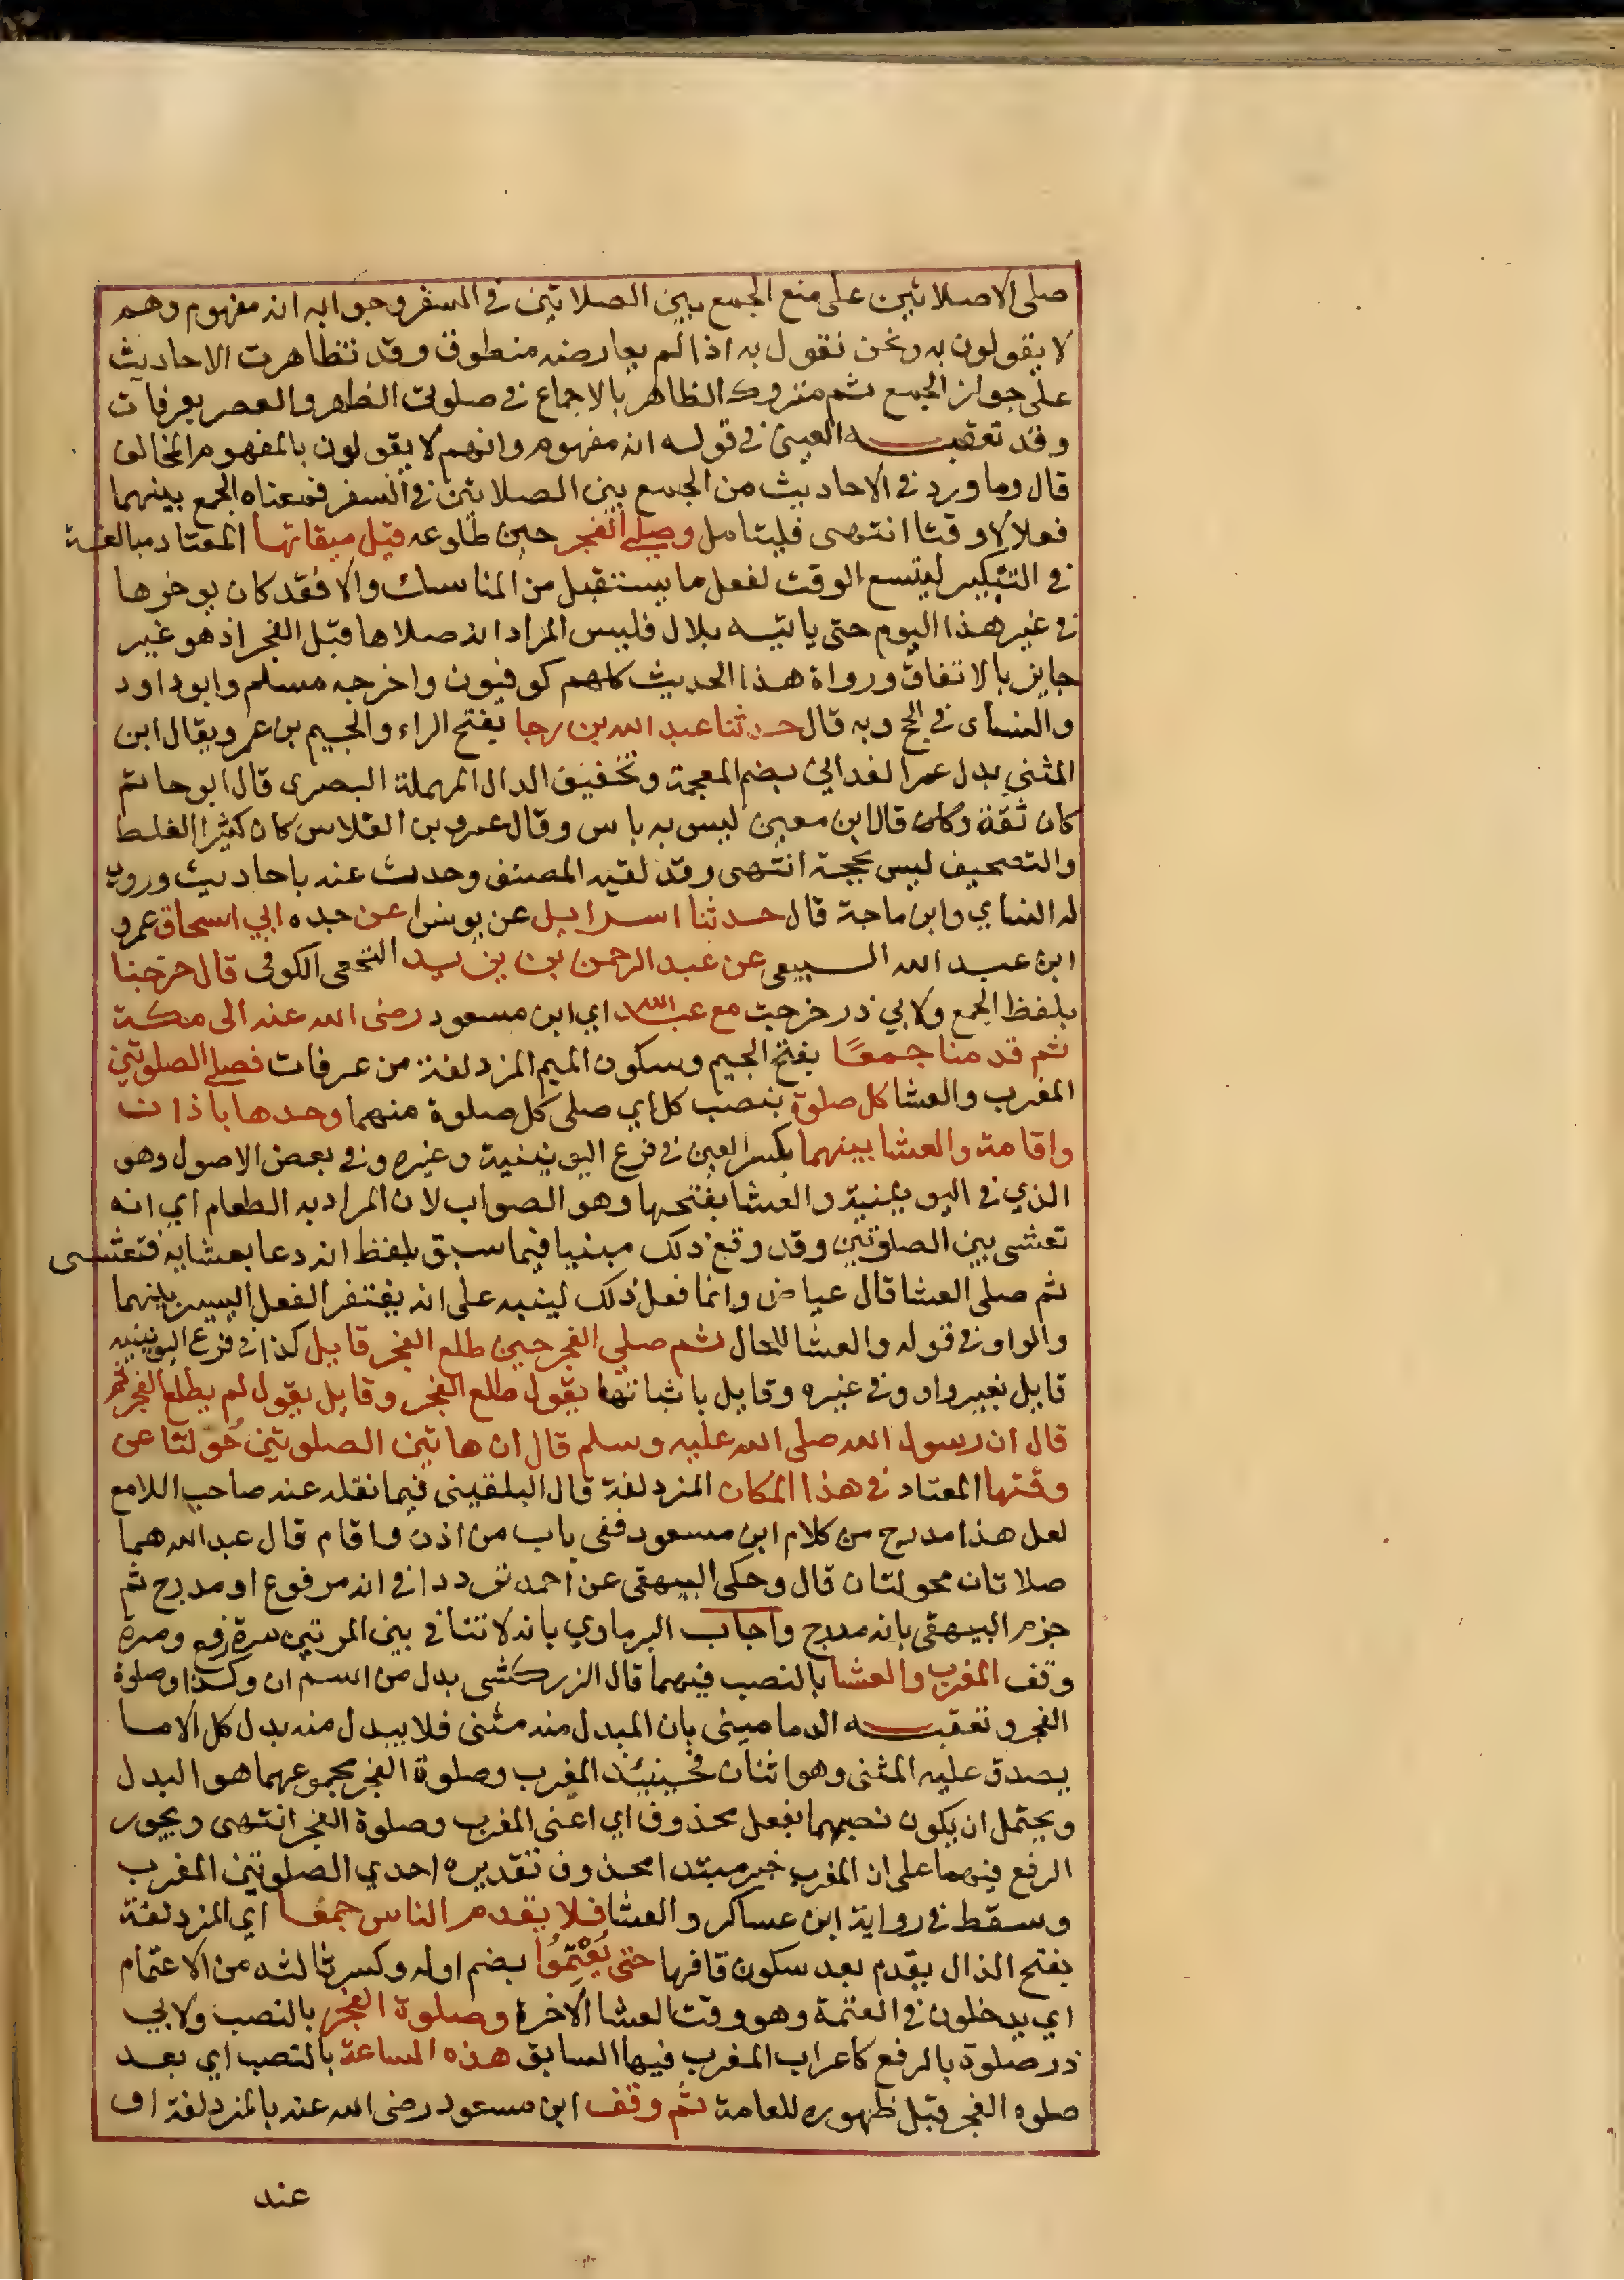 صلى الاصلاتين على منع الجمع بين الصلاتين في السفر وجوابه انه مفهوم وهم
لا يقولون به ونحن نقول به اذا لم يعارضه منطوق وقد تظاهرت الاحاديث
على جواز الجمع ثم متروك الظاهر بالاجماع في صلوتي الظهر والعصر بعرفات
وقد تعقبه العيني في قوله انه مفهوم وانهم لا يقولون بالمفهوم المخالف
قال وما ورد في الاحاديث من الجمع بين الصلاتين في السفر فمعناه الجمع بينهما
فعلا لا وقتا انتهى فليتامل وصلى الفجر حين طلوعه قبل ميقاتها المعتاد مبالغة
في التبكير ليتسع الوقت لفعل ما يستقبل من المناسك والا فقد كان يوخرها
في غير هذا اليوم حتى ياتيه بلال فليس المراد انه صلاها قبل الفجر اذ هو غير
جايز بالاتفاق ورواة هذا الحديث كلهم كوفيون واخرجه مسلم وابو داود
والنساى في الحج وبه قال حدثنا عبد الله بن رجا بفتح الراء والجيم بن عمرو يقال ابن
المثنى بدل عمر الغداني بضم المعجمة وتخفيف الدال المهملة البصرى قال ابو حاتم
كان ثقة وكان قال ابن معين ليس به باس وقال عمرو بن الفلاس كان كثير الغلط
والتصحيف ليس بحجة انتهى وقد لقيه المصنف وحدث عنه باحاديث وروى
له النساي وابن ماجة قال حدثنا اسرايل عن يونس عن جده ابي اسحاق عمرو
ابن عبد الله السبيعي عن عبد الرحمن بن يزيد النخعي الكوفي قال خرجنا
بلفظ الجمع ولابي ذر خرجت مع عبد الله اي ابن مسعود رضى الله عنه الى مكة
ثم قدمنا جمعًا بفتح الجيم وسكون الميم المزدلفة من عرفات فصلى الصلوتين
المغرب والعشا كل صلوة بنصب كل اي صلى كل صلوة منهما وحدها باذان
واقامة والعشا بينهما بكسر العين في فرع اليونينية وغيره وفي بعض الاصول وهو
الذي في اليونينية والعشا بفتحها وهو الصواب لان المراد به الطعام اي انه
تعشى بين الصلوتين وقد وقع ذلك مبنيا فيما سبق بلفظ انه دعا بعشايه فتعشى
ثم صلى العشا قال عياض وانما فعل ذلك لينبه على انه يغتفر الفعل اليسير بينهما
والواو في قوله والعشا للحال ثم صلى الفجر حين طلع الفجر قايل كذا في فرع اليونينيه
قايل بغير واو وفي غيره وقايل باثباتها يقول طلع الفجر وقايل يقول لم يطلع الفجر ثم
قال ان رسول الله صلى الله عليه وسلم قال ان هاتين الصلوتين حُولتا عن
وقتها المعتاد في هذا المكان المزدلفة قال البلقيني فيما نقله عنه صاحب اللامع
لعل هذا مدرج من كلام ابن مسعود ففي باب من اذن واقام قال عبد الله هما
صلاتان محولتان قال وحكى البيهقى عن احمد ترددا في انه مرفوع او مدرج ثم
جزم البيهقى بانه مدرج واجاب البرماوي بانه لا تنافي بين المرتين مرة رفع ومرة
وقف المغرب والعشا بالنصب فيهما قال الزركشى بدل من اسم ان وكذا وصلوة
الفجر وتعقبه الدماميني بان المبدل منه مثنى فلا يبدل منه بدل كل الا ما
يصدق عليه المثنى وهو اثنان فحينئذ المغرب وصلوة الفجر مجموعهما هو البدل
ويحتمل ان يكون نصبهما بفعل محذوف اي اعني المغرب وصلوة الفجر انتهى ويجوز
الرفع فيهما على ان المغرب خبر مبتدا محذوف تقديره احدي الصلوتين المغرب
وسقط في رواية ابن عساكر والعشا فلا يقدم الناس جمعا اي المزدلفة
بفتح الدال يقدم بعد سكون قافها حتى يُعْتِمُوا بضم اوله وكسر ثالثه من الاعتمام
اي يدخلون في العتمة وهو وقت العشا الاخرة وصلوة الفجر بالنصب ولابي
ذر صلوة بالرفع كاعراب المغرب فيها السابق هذه الساعة بالنصب اي بعد
صلوه الفجر قبل ظهوره للعامة ثم وقف ابن مسعود رضى الله عنه بالمزدلفة او
عند